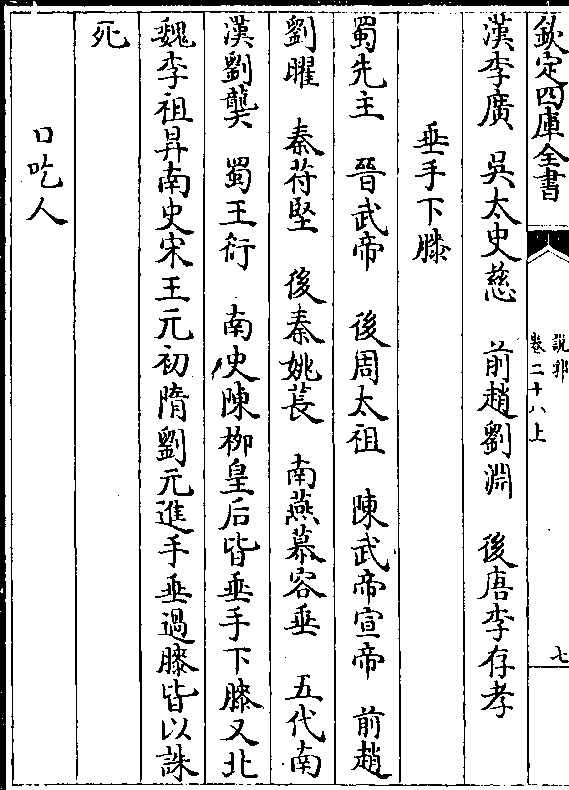 欽定四庫全書
說郛
卷二十八上
七
漢李廣　吳太史慈　前趙劉淵　後唐李存孝
垂手下膝
蜀先主　晉武帝　後周太祖　陳武帝宣帝　前趙
劉曜　秦苻堅　後秦姚萇　南燕慕容垂　五代南
漢劉龑　蜀王衍　南史陳栁皇后皆垂手下膝又北
魏李祖昇南史宋王元初隋劉元進手垂過膝皆以誅
死
口吃人